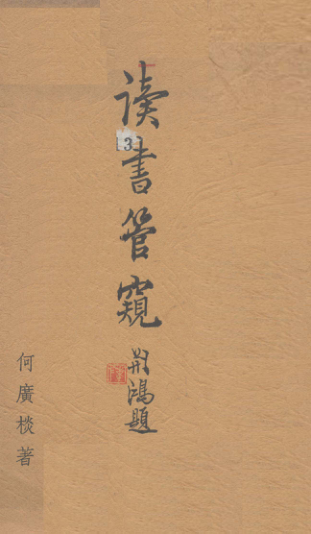 读書管窺
3
荆鴻題
何廣棪著